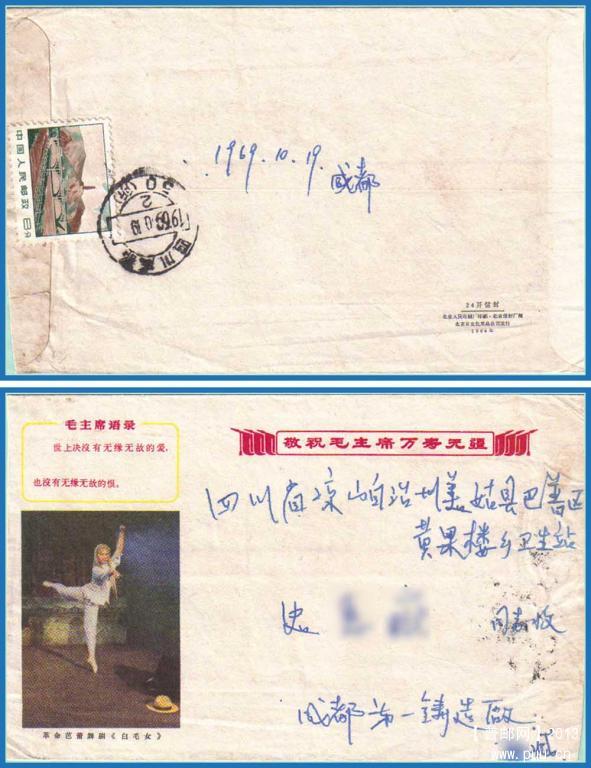 中国人民邮政
8分
1969.10.19
成都
四川成都
1969
24开信封
北京人民印刷厂印刷·北京信封厂制
1968年
毛主席语录
世上决没有无缘无故的爱，
也没有无缘无故的恨。
敬祝毛主席万寿无疆
四川省凉山自治州美姑县巴普区
黄果楼乡卫生站
同志收
成都第一铸造厰
革命芭蕾舞剧《白毛女》
2013